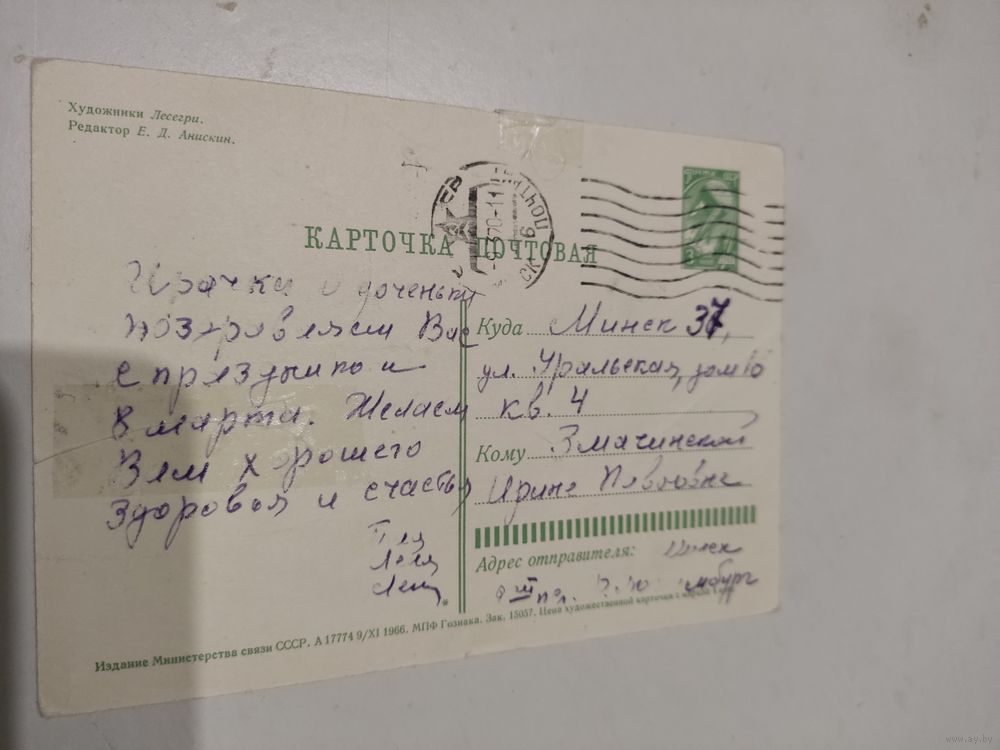 Художники Лесегри.
Редактор Е. Д. Анискин.
КАРТОЧКА ПОЧТОВАЯ
Ирочка и доченьки
поздравляем Вас
с праздником
8 марта. Желаем
Вам хорошего
здоровья и счастья
Куда Минск 37,
ул. Уральская, дом 10
кв. 4
Кому Змачинской
Ирине Павловне
Адрес отправителя: Минск
Издание Министерства связи СССР. А 17774 9/XI 1966. МПФ Гознака. Зак. 15057. Цена художественной карточки с маркой
www.ay.by